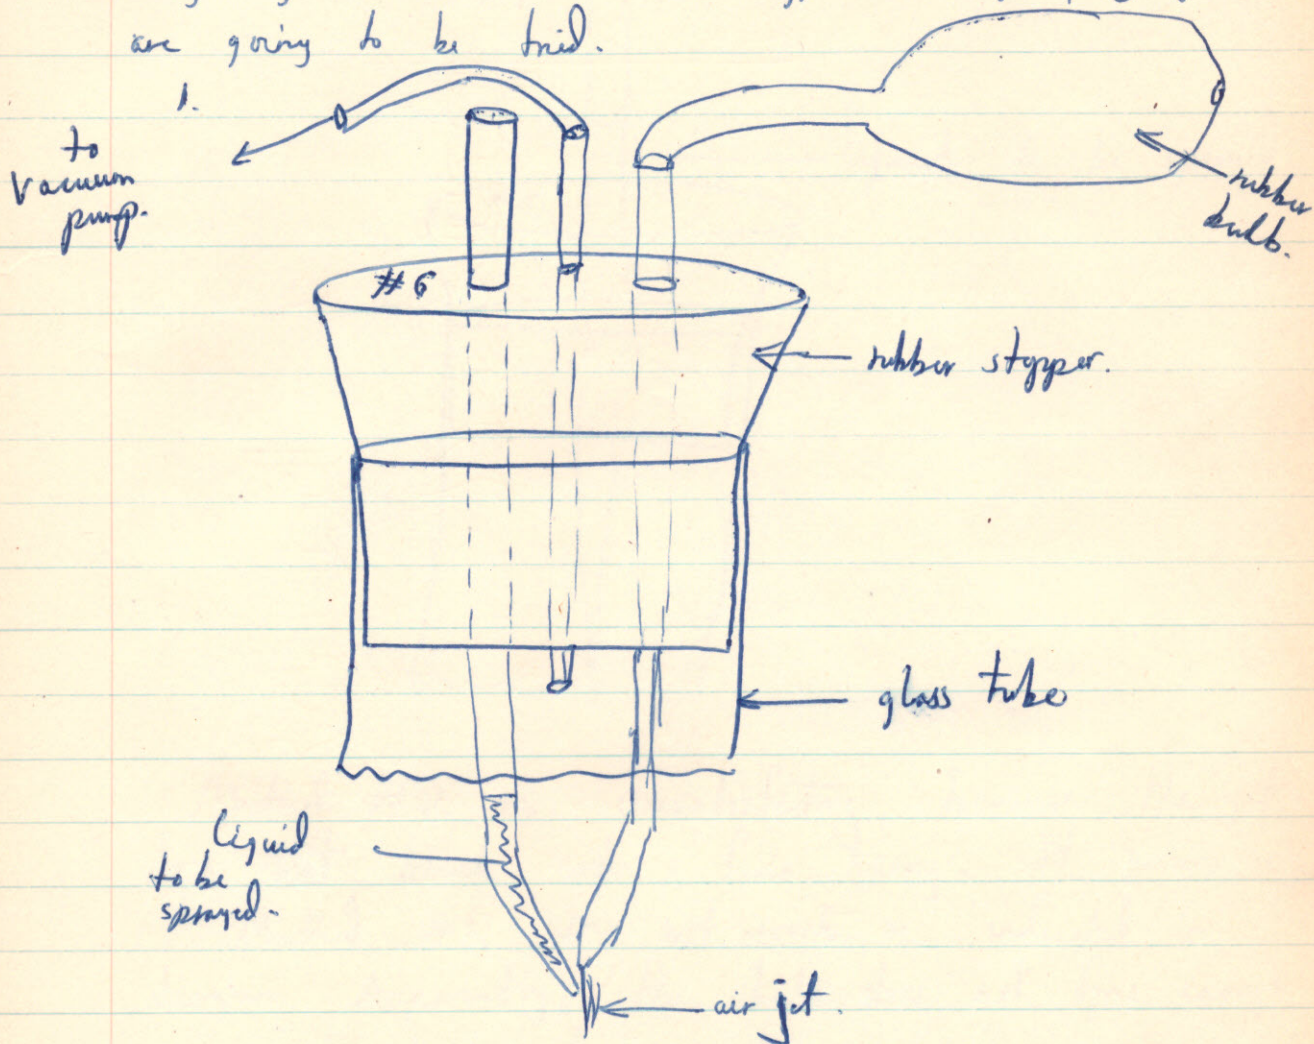 are going to be tried.
1.
to
vacuum
pump.
rubber
bulb.
#6
rubber stopper.
glass tube
liquid
to be
sprayed.
air jet.